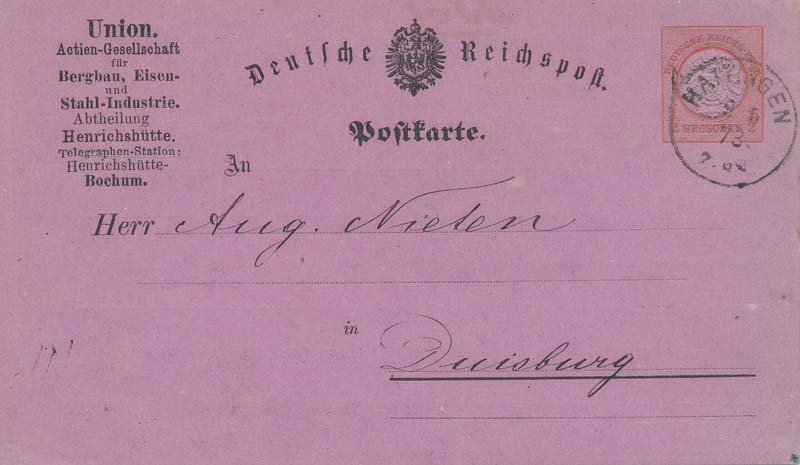 Union.
Actien-Gesellschaft
für
Bergbau, Eisen-
und
Stahl-Industrie.
Abtheilung
Henrichshütte.
Telegraphen-Station:
Henrichshütte-
Bochum.
Deutsche Reichspost.
Postkarte.
An
Herr Aug. Nieten
in
Duisburg
DEUTSCHE REICHS-POST
2 GROSCHEN 2
HATTINGEN
73